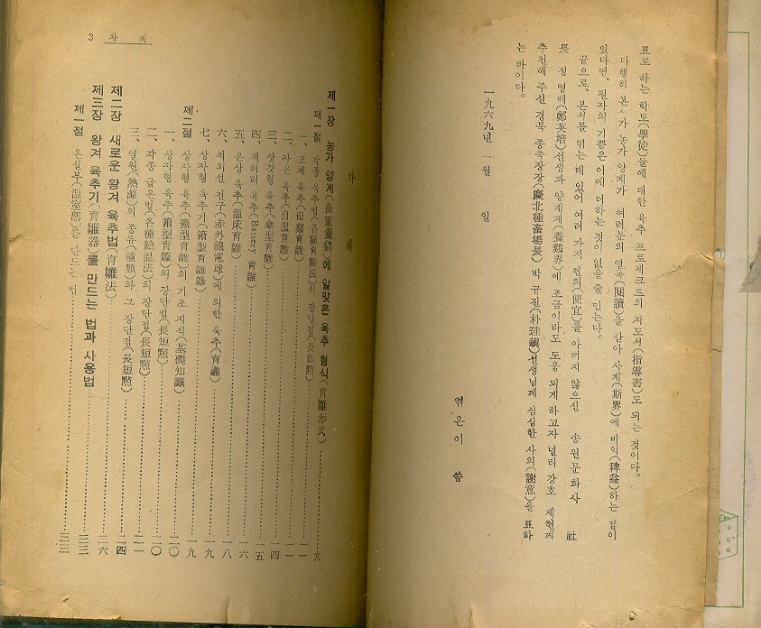 표로 하는 학도(學徒)들에 대한 육추 프로젝크트의 지도서(指導書)도 되는 것이다.
다행히 본서가 농가 양계가 여러분의 열독(閱讀)을 받아 사계(斯界)에 비익(裨益)하는 점이
있다면, 필자의 기쁨은 이에 더하는 것이 없을 줄 믿는다.
끝으로, 본서를 엮는 데 있어 여러 가지 편의(便宜)를 아끼지 않으신 송원문화사 社
長 정영배(鄭英培)선생과 양계계(養鷄界)에 조금이라도 도움 되게 하고자 널리 강호 제현께
추천해 주신 경북 종축장장(慶北種畜場長) 박규진 선생님께 심심한 사의(謝意)을 표하
는 바이다.
一九六九年 一월 일
엮은이 씀
차 례
제一장 농가 양계(農家養鷄)에 알맞은 육추 형식(育雛形式)
제一절 각종 육추법(各種育雛法)의 장단점(長短點) 九
一、모계 육추(母鷄育雛) 一一
二、자온 육추(自溫育雛) 一一
三、삿갓형 육추(傘型育雛) 一四
四、배터리 육추(Battery 育雛) 一五
五、온상 육추(溫床育雛) 一六
六、적외선 전구(赤外線電球)에 의한 육추(育雛) 一八
七、상자형 육추기(箱型育雛器) 一九
제二절 상자형 육추(箱型育雛)의 기초 지식(基礎知識) 一九
一、상자형 육추(箱型育雛)의 장단점(長短點) 二〇
二、각종 급온법(各種給溫法)의 장단점(長短點) 二〇
三、열원(熱源)의 종류(種類)와 그 장단점(長短點) 二一
제二장 새로운 왕겨 육추법(育雛法) 二四
제三장 왕겨 육추기(育雛器)를 만드는 법과 사용법 二六
제一절 온실부(溫室部)를 만드는 법 三三
三三
3 차 례